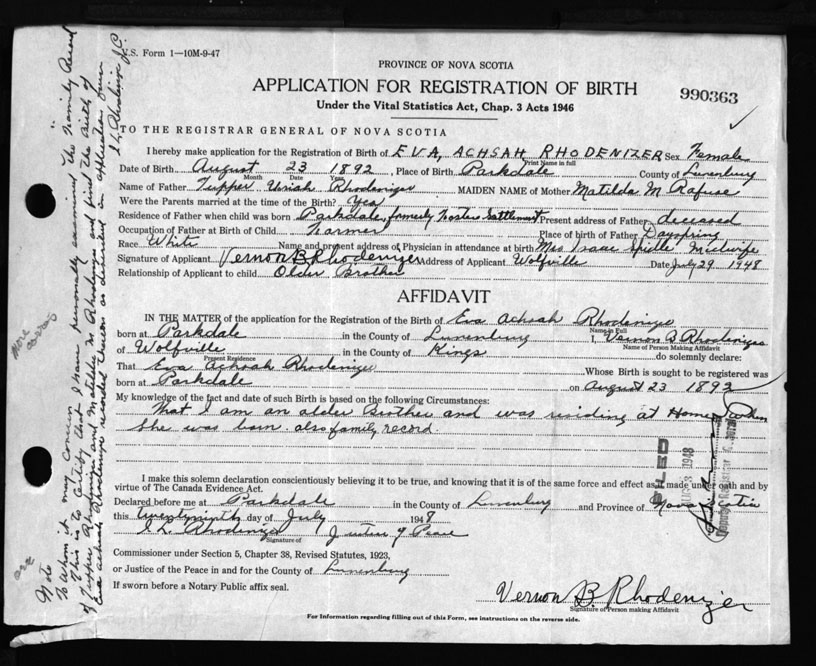 V.S. Form 1—10M-9-47
PROVINCE OF NOVA SCOTIA
APPLICATION FOR REGISTRATION OF BIRTH
990363
Under the Vital Statistics Act, Chap. 3 Acts 1946
TO THE REGISTRAR GENERAL OF NOVA SCOTIA
I hereby make application for the Registration of Birth of EVA, ACHSAH RHODENIZER Sex Female
Print Name in full
Date of Birth August 23 1892, Place of Birth Parkdale County of Lunenburg
Month Date Year
Name of Father Tupper Uriah Rhodenizer MAIDEN NAME of Mother Matilda M Rafuse
Were the Parents married at the time of the Birth? Yes
Residence of Father when child was born Parkdale, formerly Fosters Settlement Present address of Father deceased
Occupation of Father at Birth of Child Farmer Place of birth of Father Dayspring
Race White Name and present address of Physician in attendance at birth Mrs Isaac Midwife
Signature of Applicant Vernon B Rhodenizer Address of Applicant Wolfville Date July 29 1948
Relationship of Applicant to child Older Brother
AFFIDAVIT
IN THE MATTER of the application for the Registration of the Birth of Eva Achsah Rhodenizer
Name in Full
born at Parkdale in the County of Lunenburg I, Vernon B Rhodenizer
Name of Person Making Affidavit
of Wolfville in the County of Kings do solemnly declare:
Present Residence
That Eva Achsah Rhodenizer Whose Birth is sought to be registered was
born at Parkdale on August 23 1892
My knowledge of the fact and date of such Birth is based on the following Circumstances:
That I am an older Brother and was residing at Home when
She was born. also family record.
FILED
AUG 3 1948
I make this solemn declaration conscientiously believing it to be true, and knowing that it is of the same force and effect as made under oath and by
virtue of The Canada Evidence Act.
Declared before me at Parkdale in the County of Lunenburg and Province of Nova Scotia
this twentyninth day of July 1948
I L Rhodenizer Justice of Peace
Signature of
Commissioner under Section 5, Chapter 38, Revised Statutes, 1923,
or Justice of the Peace in and for the County of Lunenburg
If sworn before a Notary Public affix seal.
Vernon B Rhodenizer
Signature of Person making Affidavit
For Information regarding filling out of this Form, see instructions on the reverse side.
Note
To Whom it may concern
This is to certify that I have personally examined "The Family Record"
of Tupper Rhodenizer and Matilda M Rhodenizer and find the Birth of
Eva Achsah Rhodenizer recorded thereon as described in application
I L Rhodenizer J.P.